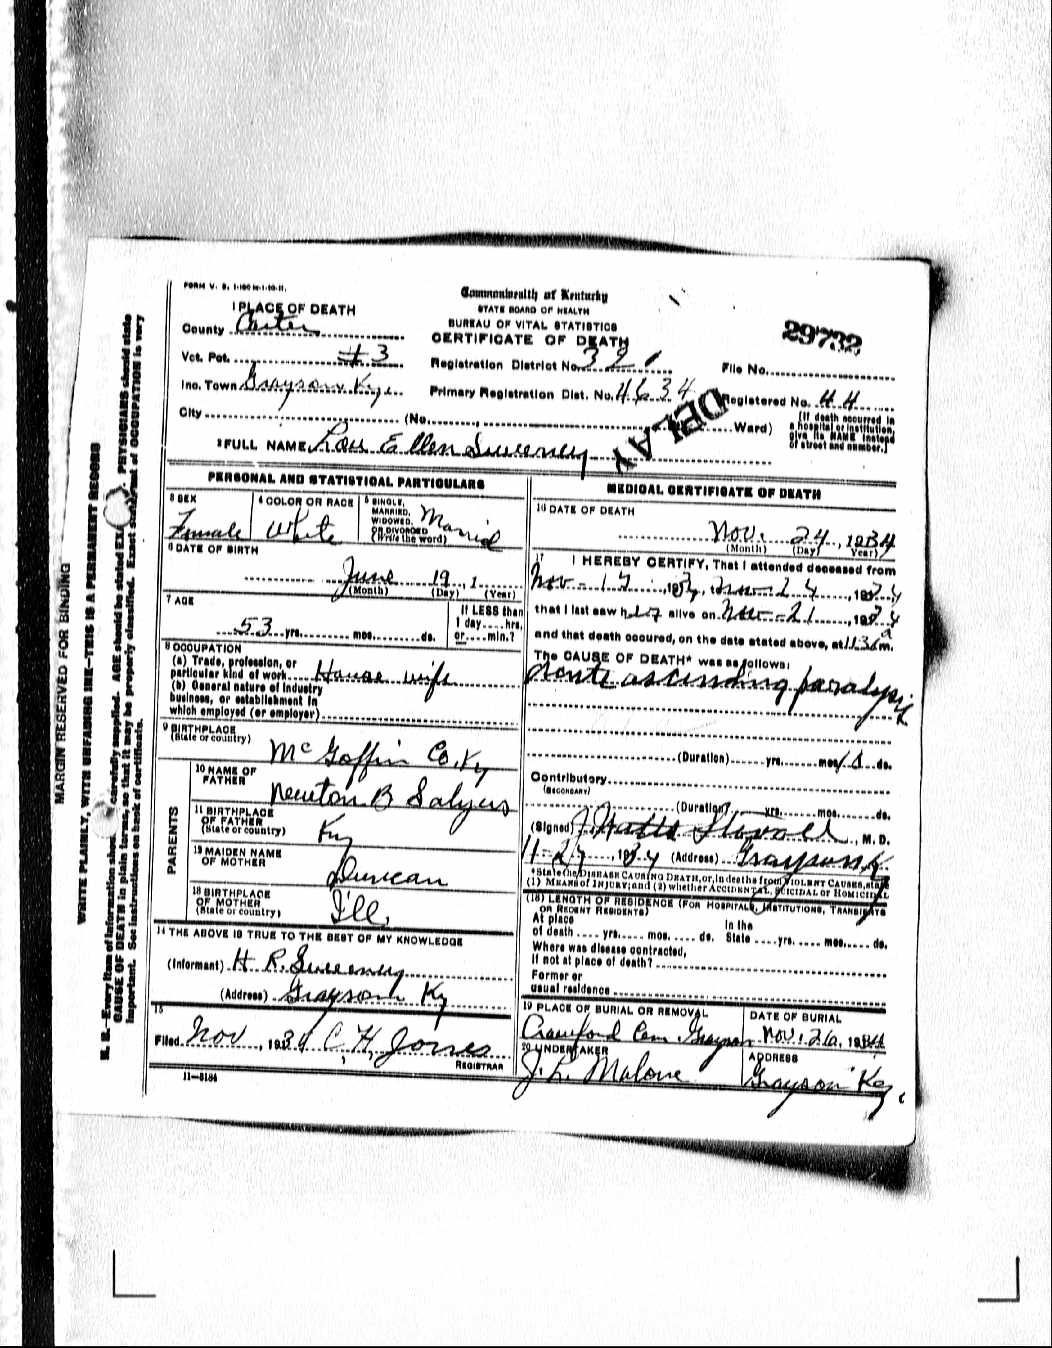 MARGIN RESERVED FOR BINDING
WRITE PLAINLY, WITH UNFADING INK—THIS IS A PERMANENT RECORD
N. B.—Every item of information should be carefully supplied. AGE should be stated EXACTLY. PHYSICIANS should state
CAUSE OF DEATH in plain terms, so that it may be properly classified. Exact statement of OCCUPATION is very
important. See instructions on back of certificate.
FORM V. S.
Commonwealth of Kentucky
STATE BOARD OF HEALTH
BUREAU OF VITAL STATISTICS
CERTIFICATE OF DEATH
29732
1 PLACE OF DEATH
County Carter
Vot. Pct. #3
Inc. Town Grayson Ky.
City (No. , Ward)
Registration District No. 321
Primary Registration Dist. No. 4634
File No.
Registered No. 44
[If death occurred in
a hospital or institution,
give its NAME instead
of street and number.]
DELAY
2 FULL NAME Lou Ellen Sweeney
PERSONAL AND STATISTICAL PARTICULARS
3 SEX Female
4 COLOR OR RACE White
5 SINGLE, MARRIED, WIDOWED, OR DIVORCED (Write the word) Married
6 DATE OF BIRTH
June 19, 1
(Month) (Day) (Year)
7 AGE
53 yrs. mos. ds.
If LESS than
1 day hrs.
or min.?
8 OCCUPATION
(a) Trade, profession, or
particular kind of work House wife
(b) General nature of industry
business, or establishment in
which employed (or employer)
9 BIRTHPLACE
(State or country) McGoffin Co. Ky
PARENTS
10 NAME OF
FATHER Newton B Salyers
11 BIRTHPLACE
OF FATHER
(State or country) Ky
12 MAIDEN NAME
OF MOTHER Duncan
13 BIRTHPLACE
OF MOTHER
(State or country) Ill.
14 THE ABOVE IS TRUE TO THE BEST OF MY KNOWLEDGE
(Informant) H. R. Sweeney
(Address) Grayson Ky
15
Filed Nov , 1934 C. H. Jones
REGISTRAR
11—3184
MEDICAL CERTIFICATE OF DEATH
16 DATE OF DEATH
Nov. 24, 1934
(Month) (Day) (Year)
17 I HEREBY CERTIFY, That I attended deceased from
Nov - 15, 1934, to Nov - 24, 1934
that I last saw her alive on Nov - 21, 1934
and that death occured, on the date stated above, at 11:30 a m.
The CAUSE OF DEATH* was as follows:
Acute ascending paralysis
(Duration) yrs. mos. 10 ds.
Contributory
(SECONDARY)
(Duration) yrs. mos. ds.
(Signed) J. Watts Stovall, M. D.
11-27, 1934 (Address) Grayson Ky
*State the DISEASE CAUSING DEATH, or, in deaths from VIOLENT CAUSES, state
(1) MEANS OF INJURY; and (2) whether ACCIDENTAL, SUICIDAL or HOMICIDAL
(18) LENGTH OF RESIDENCE (FOR HOSPITALS, INSTITUTIONS, TRANSIENTS
OR RECENT RESIDENTS)
At place In the
of death yrs. mos. ds. State yrs. mos. ds.
Where was disease contracted,
If not at place of death?
Former or
usual residence
19 PLACE OF BURIAL OR REMOVAL
Crawford Cem Grayson
DATE OF BURIAL
Nov. 26, 1934
20 UNDERTAKER
J. L. Malone
ADDRESS
Grayson Ky.